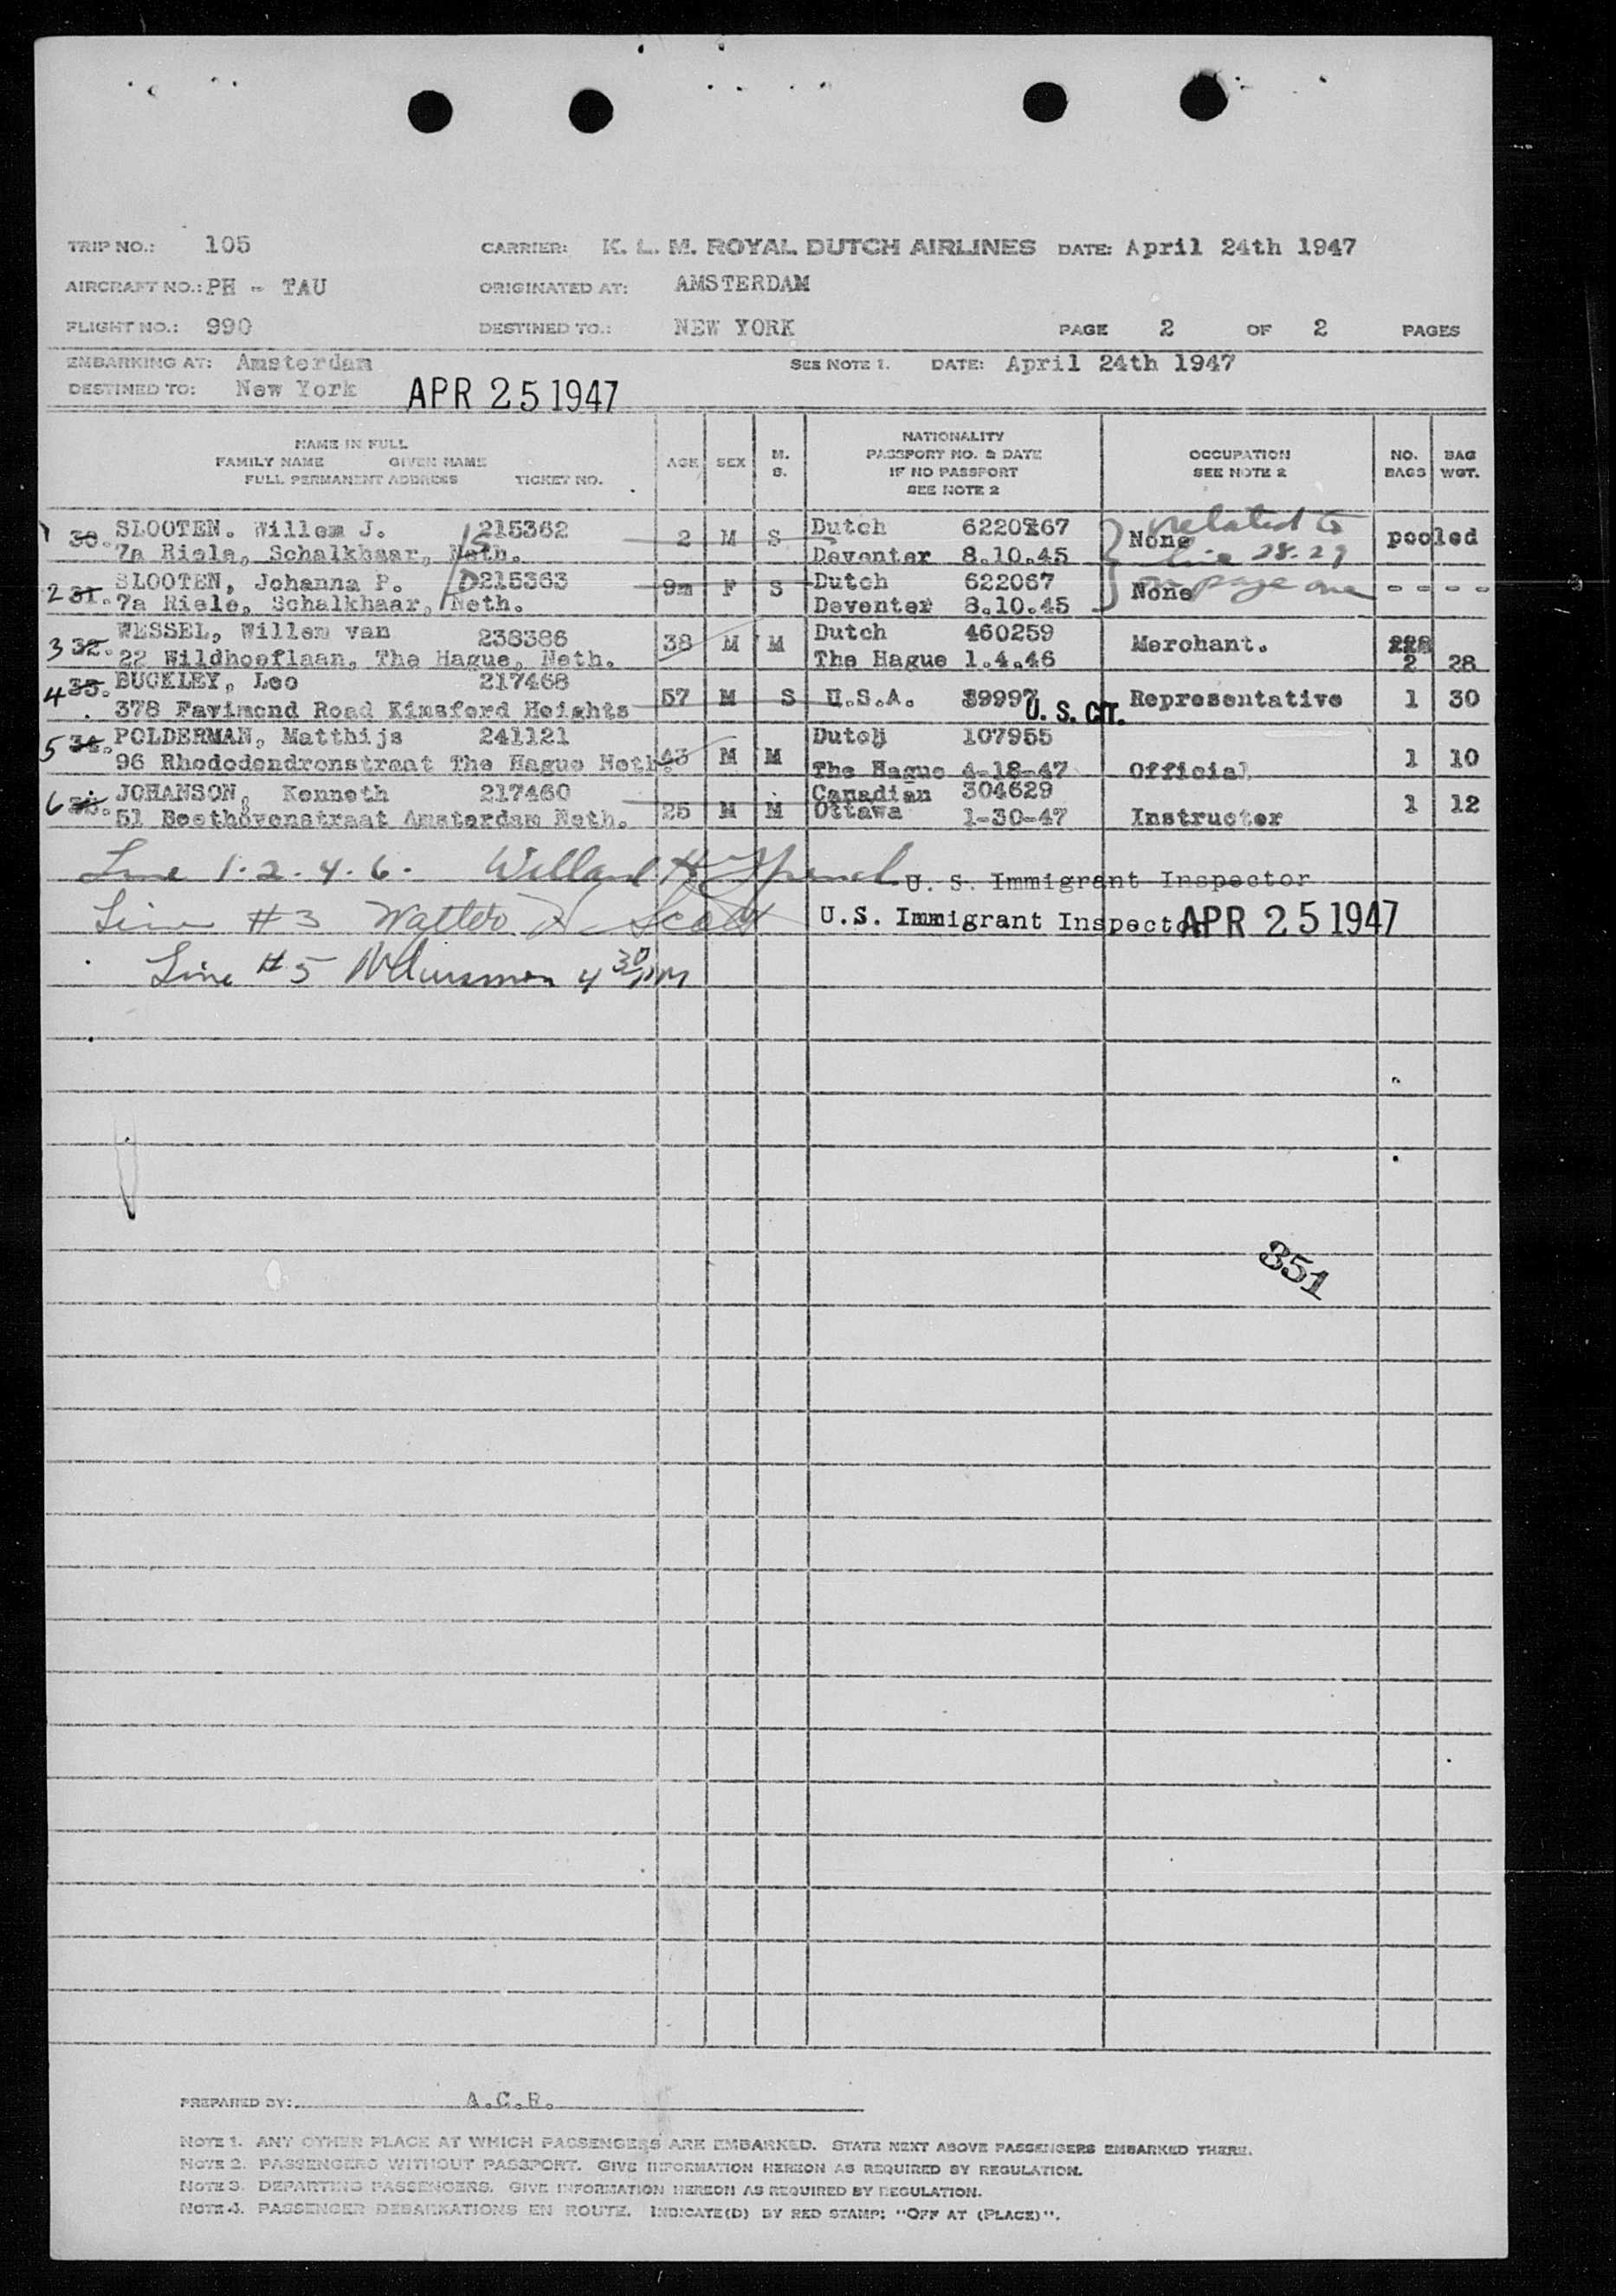 TRIP NO.: 105 CARRIER: K. L. M. ROYAL DUTCH AIRLINES DATE: April 24th 1947
AIRCRAFT NO.: PH - TAU ORIGINATED AT: AMSTERDAM
FLIGHT NO.: 990 DESTINED TO.: NEW YORK PAGE 2 OF 2 PAGES
EMBARKING AT: Amsterdam SEE NOTE 1. DATE: April 24th 1947
DESTINED TO: New York APR 25 1947
NAME IN FULL
FAMILY NAME GIVEN NAME
FULL PERMANENT ADDRESS TICKET NO.
AGE SEX M. S.
NATIONALITY
PASSPORT NO. & DATE
IF NO PASSPORT
SEE NOTE 2
OCCUPATION
SEE NOTE 2
NO. BAGS
BAG WGT.
1 30. SLOOTEN. Willem J. 215362 2 M S Dutch 6220767 None related to pooled
7a Riele, Schalkhaar, Neth. Deventer 8.10.45 line 28-29
2 31. SLOOTEN, Johanna P. 215363 9m F S Dutch 622067 None on page one - - - -
7a Riele, Schalkhaar, Neth. Deventer 8.10.45
3 32. WESSEL, Willem van 238386 38 M M Dutch 460259 Merchant.
22 Wildhoeflaan, The Hague, Neth. The Hague 1.4.46 2 28
4 33. BUCKLEY, Leo 217468 57 M S U.S.A. U. S. CIT. Representative 1 30
378 Favimond Road Kimsford Heights
5 34. POLDERMAN, Matthijs 241121 43 M M Dutch 107955 1 10
96 Rhododendronstraat The Hague Neth. The Hague 4-18-47 Official
6 35. JOHANSON, Kenneth 217460 25 M M Canadian 304629 1 12
51 Beethovenstraat Amsterdam Neth. Ottawa 1-30-47 Instructor
Line 1. 2. 4. 6. Willard H U. S. Immigrant Inspector
Line #3 Walter Scott U.S. Immigrant Inspector APR 25 1947
Line #5 4 30 PM
351
PREPARED BY: A.C.R.
NOTE 1. ANY OTHER PLACE AT WHICH PASSENGERS ARE EMBARKED. STATE NEXT ABOVE PASSENGERS EMBARKED THERE.
NOTE 2. PASSENGERS WITHOUT PASSPORT. GIVE INFORMATION HEREON AS REQUIRED BY REGULATION.
NOTE 3. DEPARTING PASSENGERS. GIVE INFORMATION HEREON AS REQUIRED BY REGULATION.
NOTE 4. PASSENGER DEBARKATIONS EN ROUTE. INDICATE(D) BY RED STAMP: "OFF AT (PLACE)".